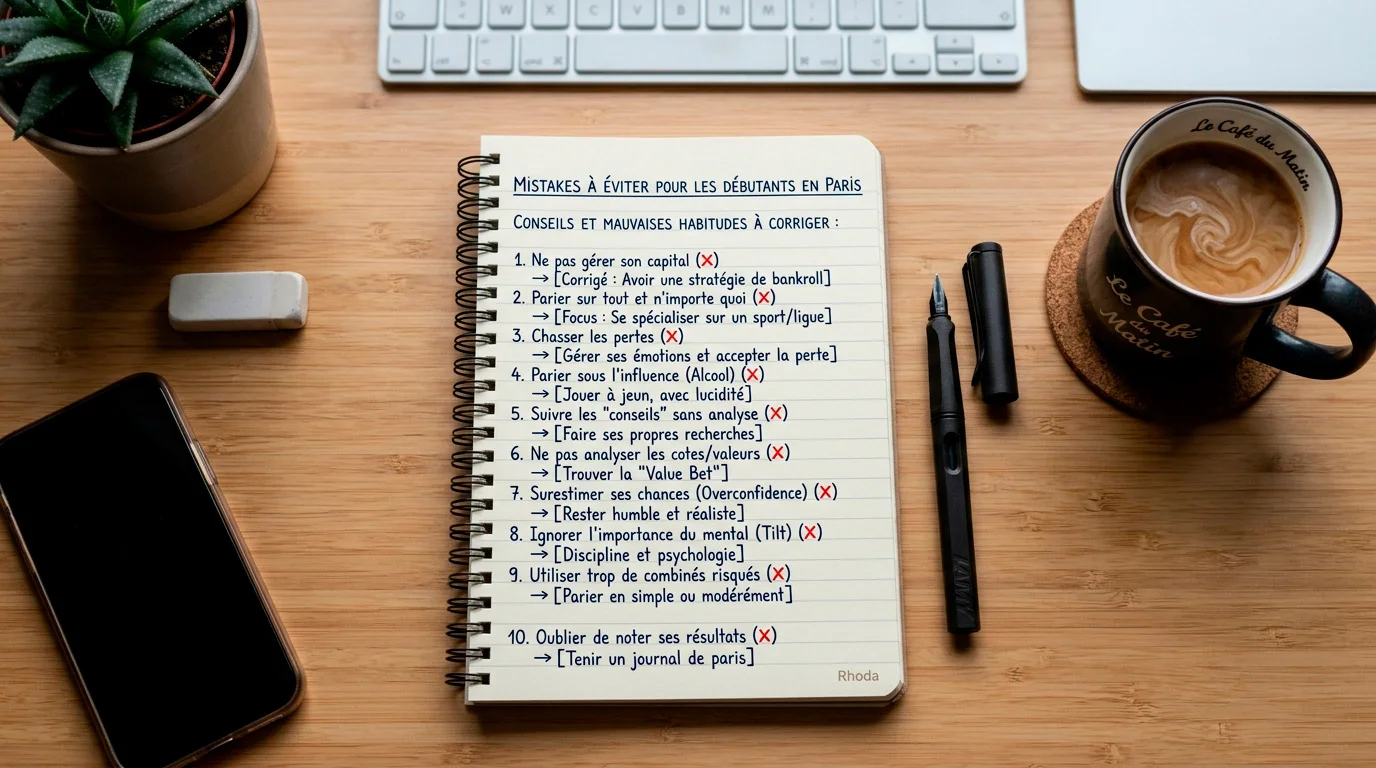 MISTAKES À ÉVITER POUR LES DÉBUTANTS EN PARIS
CONSEILS ET MAUVAISES HABITUDES À CORRIGER :
1. Ne pas gérer son capital (X)
→ [Corrigé : Avoir une stratégie de bankroll]
2. Parier sur tout et n'importe quoi (X)
→ [Focus : Se spécialiser sur un sport/ligue]
3. Chasser les pertes (X)
→ [Gérer ses émotions et accepter la perte]
4. Parier sous l'influence (Alcool) (X)
→ [Jouer à jeun, avec lucidité]
5. Suivre les "conseils" sans analyse (X)
→ [Faire ses propres recherches]
6. Ne pas analyser les cotes/valeurs (X)
→ [Trouver la "Value Bet"]
7. Surestimer ses chances (Overconfidence) (X)
→ [Rester humble et réaliste]
8. Ignorer l'importance du mental (Tilt) (X)
→ [Discipline et psychologie]
9. Utiliser trop de combinés risqués (X)
→ [Parier en simple ou modérément]
10. Oublier de noter ses résultats (X)
→ [Tenir un journal de paris]
Rhoda
Le Café du Matin
Le Café
du
Matin
Z X C V B N M
fn
cmd ⌘
⌘ cmd